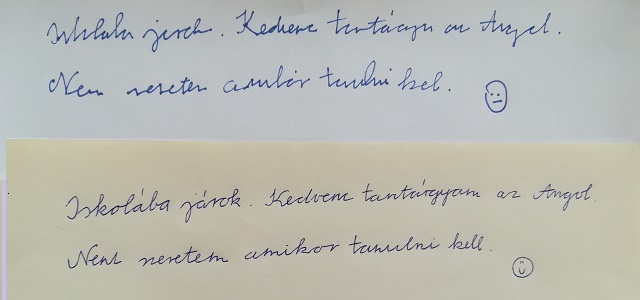 Iskolába járok. Kedvenc tantárgyam az Angol.
Nem szeretem amikor tanulni kell.
Iskolába járok. Kedvenc tantárgyam az Angol.
Nem szeretem amikor tanulni kell.